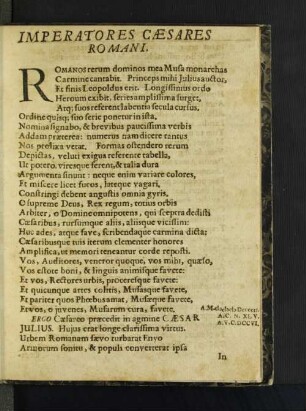 IMPERATORES CÆSARES
ROMANI.
ROMANOS rerum dominos mea Musa monarchas
Carmine cantabit. Princeps mihi Julius auctor,
Et finis Leopoldus erit. Longissimus ordo
Heroum exibit. series amplissima surget,
Atq; suos referent labentia secula cursus.
Ordine quisq; suo serie ponetur in ista,
Nomina signabo, & brevibus paucissima verbis
Addam præterea: numerus nam dicere tantus
Nos prolixa vetat. Formas ostendero rerum
Depictas, veluti exigus referente tabella,
Ut potero. viresque ferent, & talia dura
Argumenta sinunt: neque enim variare colores,
Et miscere licet fucos, lateque vagari,
Constringi debent angustis omnia gyris.
O supreme Deus, Rex regum, totius orbis
Arbiter, o Domine omnipotens, qui sceptra dedisti
Cæsaribus, rursumque aliis, aliisque vicissim:
Huc ades, atque fave, scribendaque carmina dicta;
Cæsaribusque tuis iterum clementer honores
Amplifica, et memori teneantur corde reposti.
Vos, Auditores, venetor quoque, vos mihi, quæso,
Vos estote boni, & linguis animisque favete:
Et vos, Rectores urbis, proceresque favete:
Et quicunque artes colitis, Musasque favete,
Et pariter quos Phœbus amat, Musæque favete,
Et vos, o juvenes, Musarum cura, favete.
ERGO Cæsareo præcedit in agmine CÆSAR
JULIUS. Hujus erat longe clarissima virtus.
Urbem Romanam sævo turbarat Enyo
Armorum sonitu, & populi converterat ipsa
A.C.N. XLV.
A.V.C. DCCVI.
In